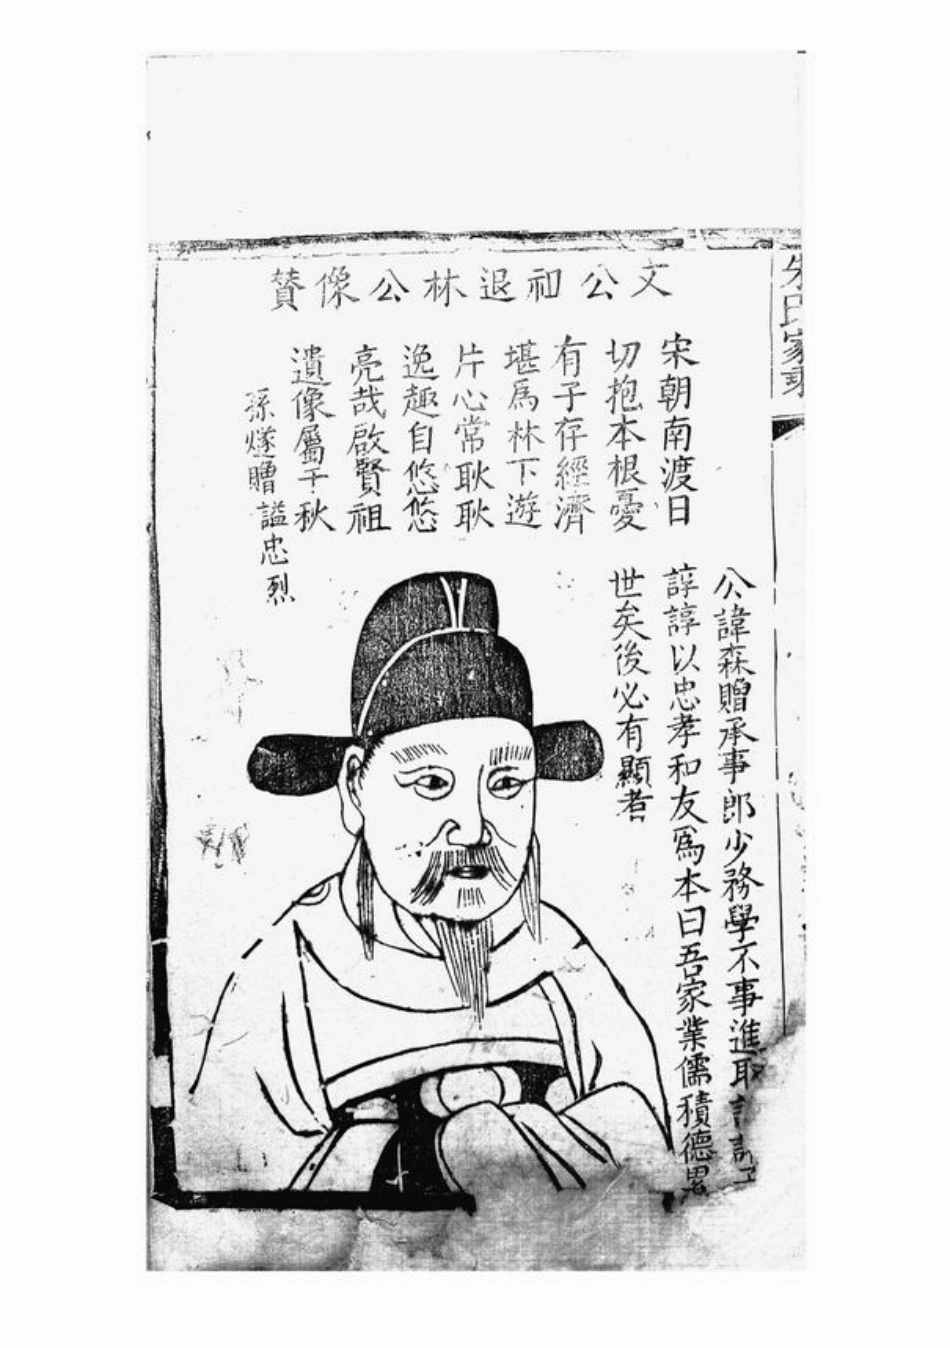 朱氏家乘
文公祖退林公像贊
宋朝南渡日
切抱本根憂
有子存經濟
堪爲林下遊
片心常耿耿
逸趣自悠悠
亮哉啟賢祖
遺像屬千秋
孫燧贈謚忠烈
公諱森贈承事郎少務學不事進取
諄諄以忠孝和友爲本曰吾家業儒積德
世矣後必有顯者